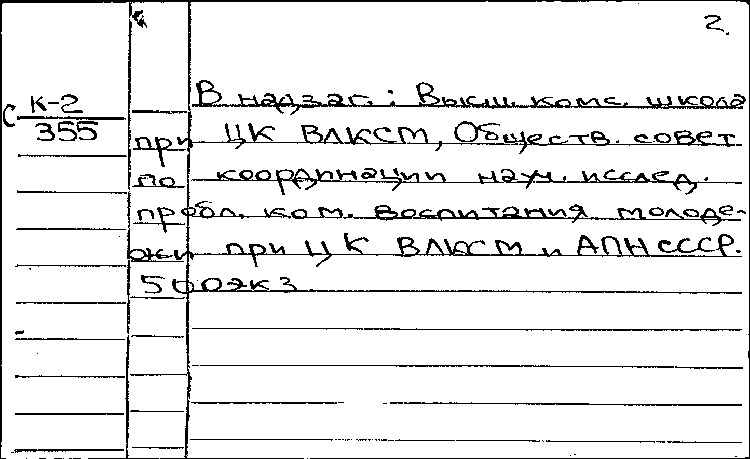 2.
С К-2
355
В надзаг.: Высш. комс. школа
при ЦК ВЛКСМ, Обществ. совет
по координации науч. исслед.
пробл. ком. воспитания молоде-
жи при ЦК ВЛКСМ и АПН СССР.
500экз.